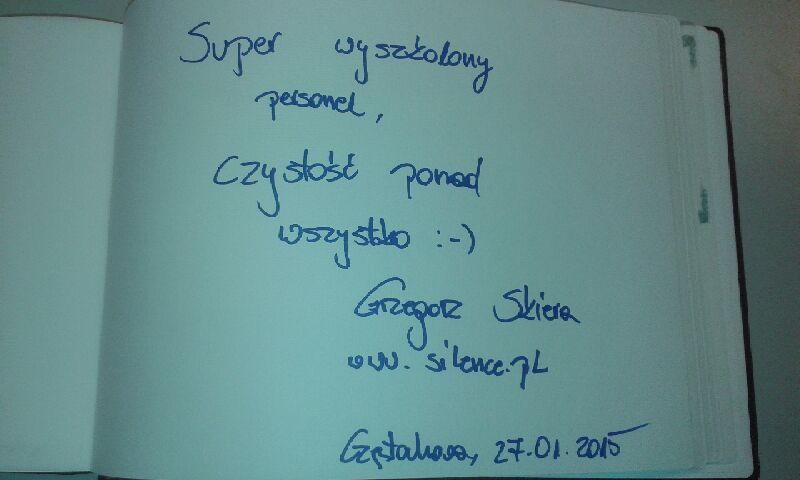 Super wyszkolony
personel,
Czystość ponad
wszystko :-)
Grzegorz Skiera
www.silence.pl
27.01.2015